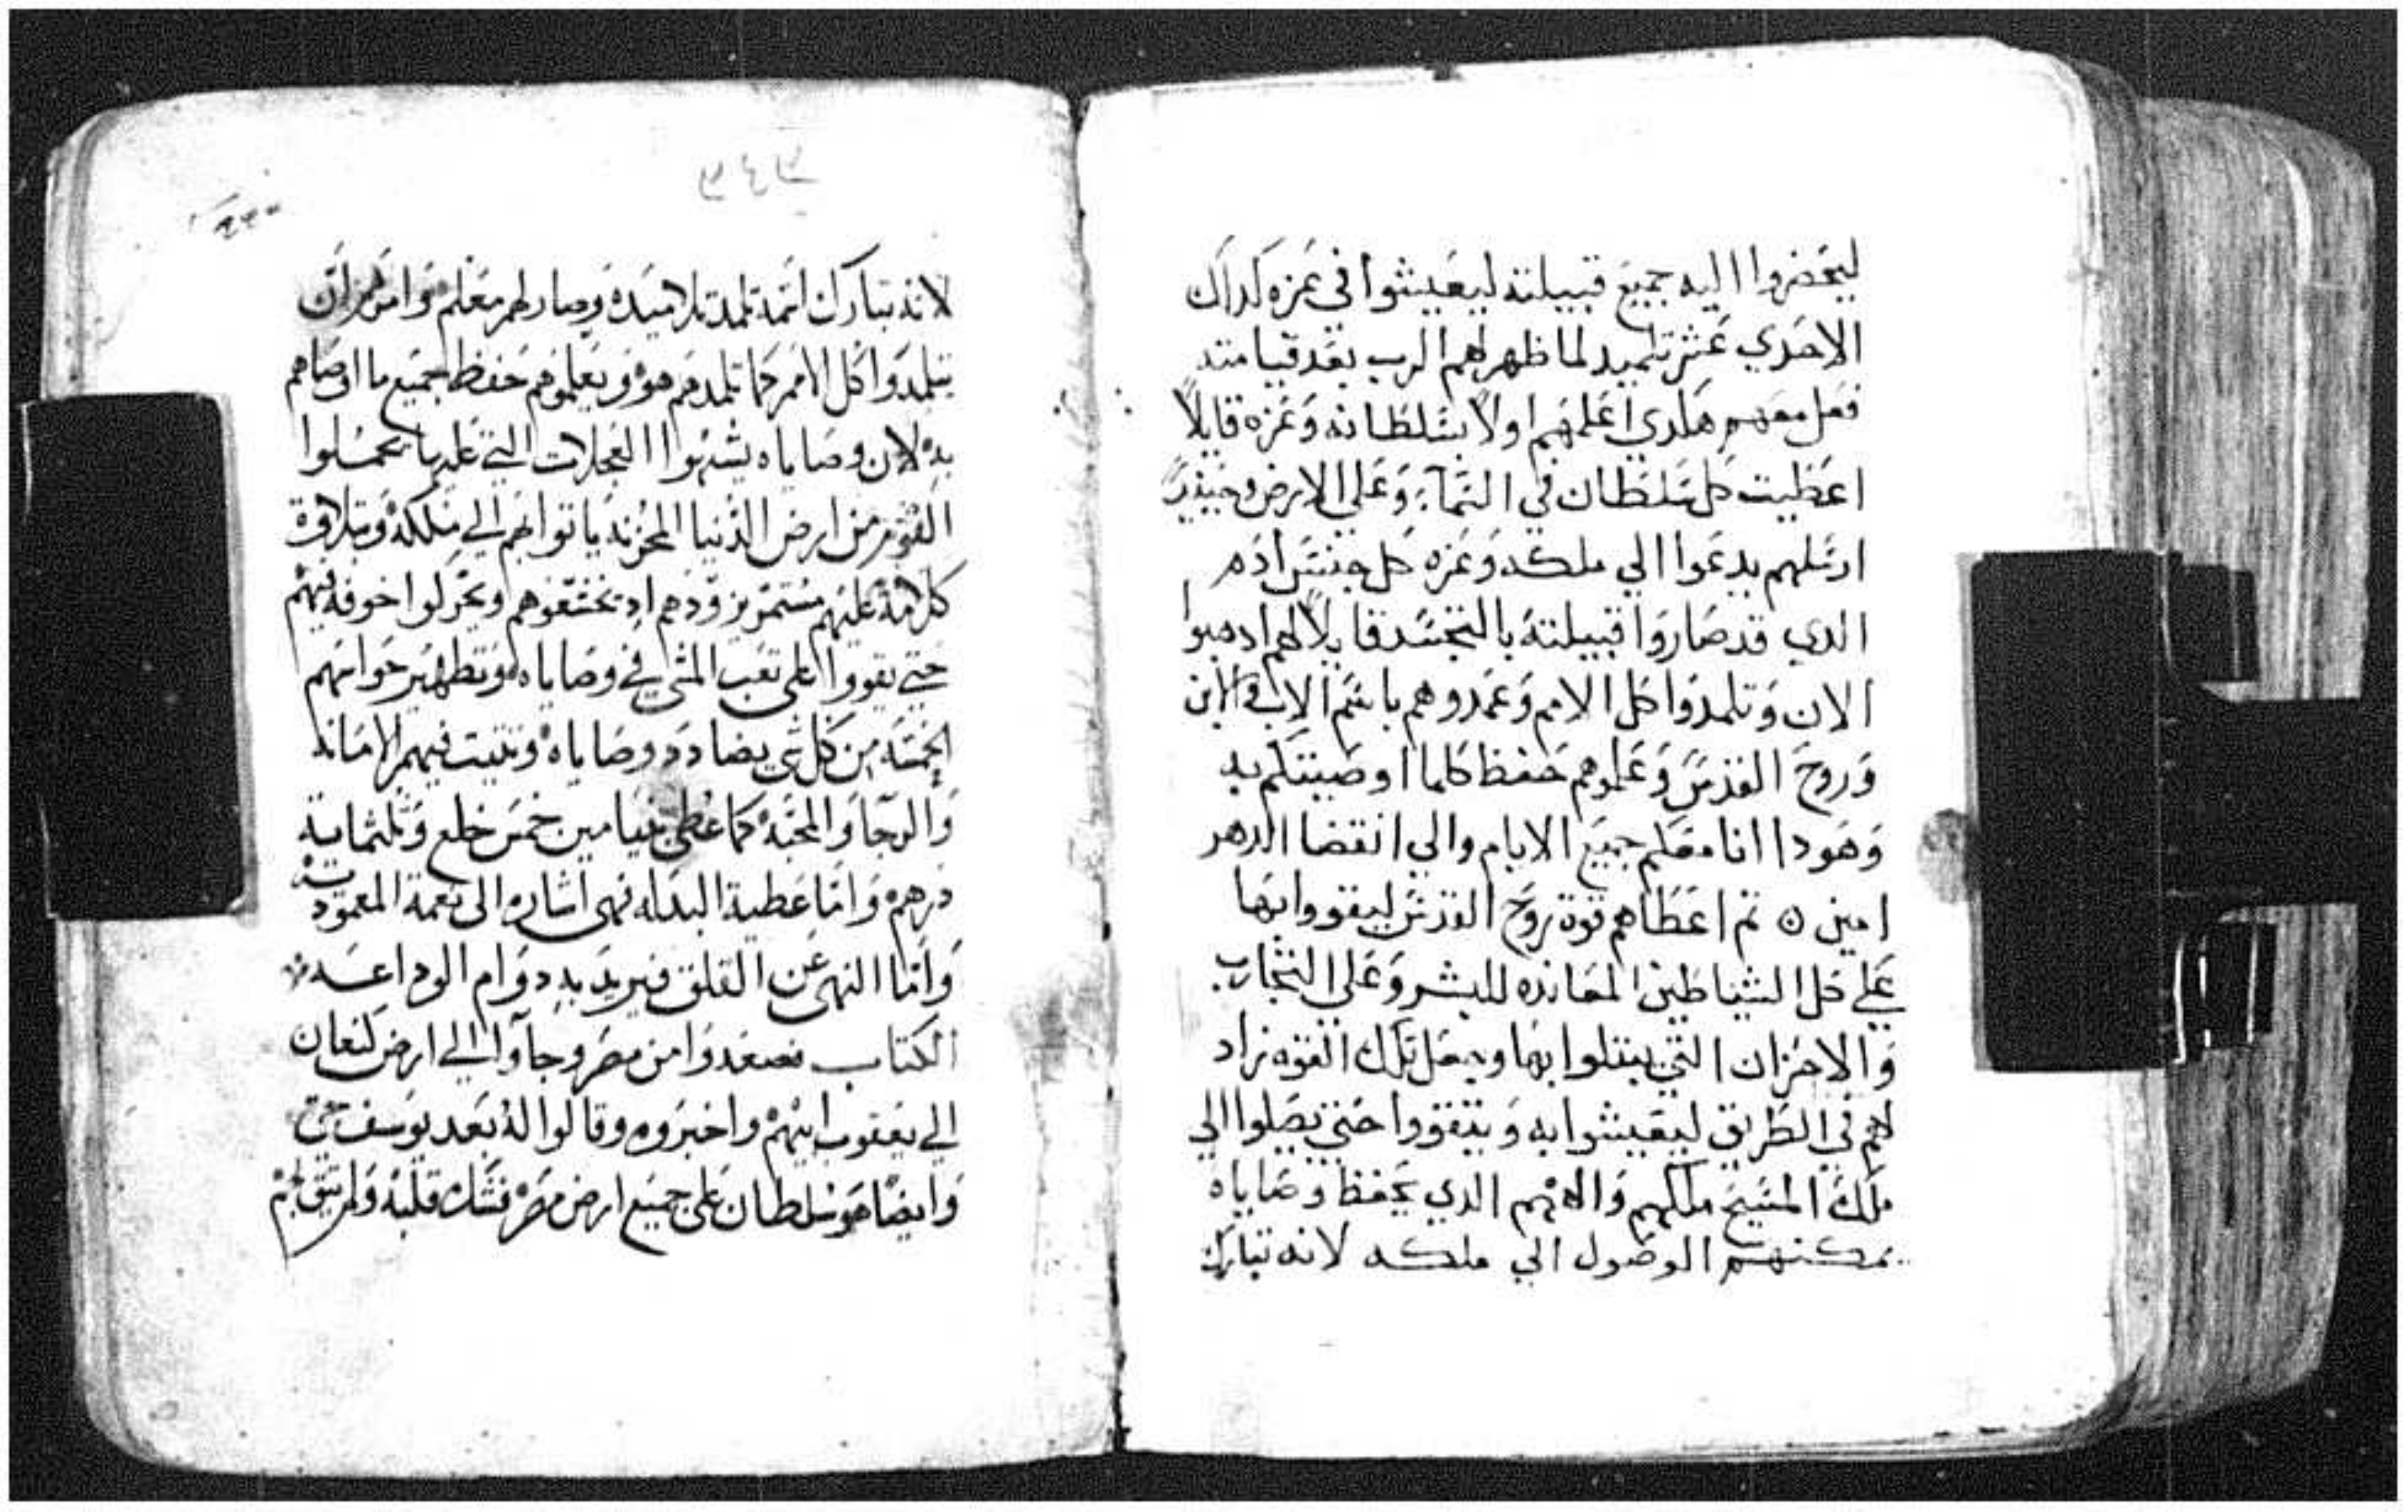 ليحضروا اليه جميع قبيلته ليعيشوا في عزه كداك
الاحدي عشر تلميد لما ظهر لهم الرب بعد قيامته
فعل معهم هكدي اعلمهم اولاً بسلطانه وعزه قايلاً
اعطيت كل سلطان في السماء وعلي الارض وحينيدٍ
ارسلهم يدعوا الي ملكه وعزه كل جنس ادم
الدي قد صاروا قبيلته بالتجسد قايلاً لهم ادهبوا
الان وتلمدوا كل الامم وعمدوهم باسم الاب والابن
وروح القدس وعلموهم حفظ كلما اوصيتكم به
وهودا انا معكم جميع الايام والي انقضا الدهر
امين ن تم اعطاهم قوة روح القدس ليقووا بها
علي كل الشياطين المعانده للبشر وعلي التجارب
والاحزان التي يبتلوا بها وبفعل تلك القوه زاد
لهم في الطريق ليعيشوا به ويتقووا حتي يصلوا الي
ملك المسيح ملكهم والاههم الدي بحفظ وصاياه
يمكنهم الوصول الي ملكه لانه تبارك
٧٤٧
لانه تبارك اسمه تلمد تلاميده وصار لهم معلم وامرهم ان
يتلمدوا كل الامم كما تلمدهم هو ويعلموهم حفظ جميع ما اوصاهم
به لان وصاياه يشبهوا العجلات التي عليها يحملوا
القوم من ارض الدنيا المحزنه ياتوا بهم الي ملكه وبتلاوة
كلامه عليهم مستمر يزودهم اد يخشعوهم ويحركوا خوفه فيهم
حتي يقووا علي تعب المشي في وصاياه وتطهير حواسهم
الخمسه من كل شي يضادد وصاياه وتتبت فيهم الامانه
والرجا والمحبه كما عطي بنيامين خمس خلع وتلتماية
درهم واما عطية البدله فهي اشاره الى نعمة المعموديت
واما النهي عن القلق فيريد به دوام الوداعه
الكتاب فصعدوا من مصر وجاوا الي ارض كنعان
الي يعقوب ابيهم واخبروه وقالوا له بعد يوسف حي
وايضا هو سلطان علي جميع ارض مصر فشك قلبه ولم يتق بهم